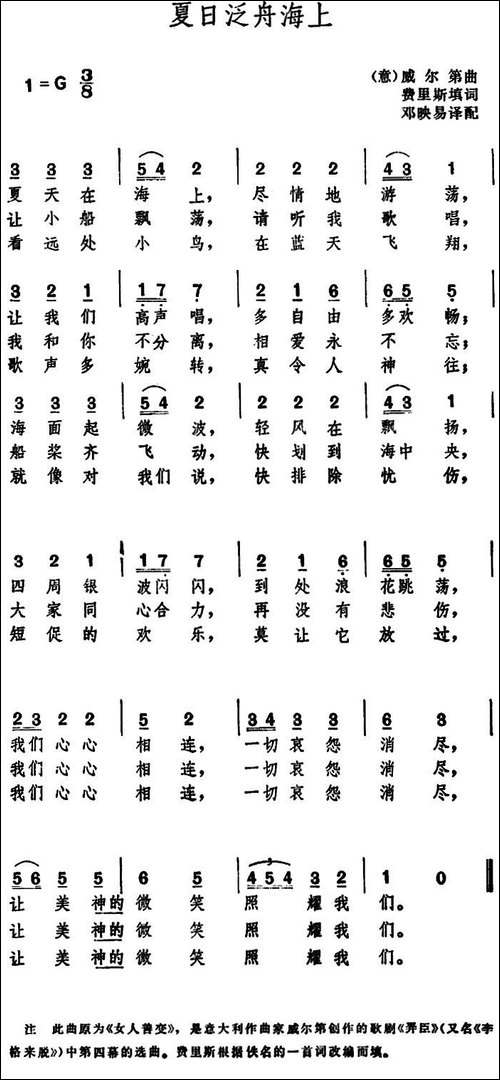 夏日泛舟海上
1=G 3/8
(意)威尔第曲
费里斯填词
邓映易译配
3 3 3 | 5 4 2 | 2 2 2 | 4 3 1 |
夏天在 海上, 尽情地 游荡,
让小船 飘荡, 请听我 歌唱,
看远处 小鸟, 在蓝天 飞翔,
3 2 1 | 1 7 7 | 2 1 6 | 6 5 5 |
让我们 高声唱, 多自由 多欢畅;
我和你 不分离, 相爱永 不忘;
歌声多 婉转, 真令人 神往;
3 3 3 | 5 4 2 | 2 2 2 | 4 3 1 |
海面起 微波, 轻风在 飘扬,
船桨齐 飞动, 快划到 海中央,
就像对 我们说, 快排除 忧伤,
3 2 1 | 1 7 7 | 2 1 6 | 6 5 5 |
四周银 波闪闪, 到处浪 花跳荡,
大家同 心合力, 再没有 悲伤,
短促的 欢乐, 莫让它 放过,
2 3 2 2 | 5 2 | 3 4 3 3 | 6 3 |
我们心心 相连, 一切哀怨 消尽,
我们心心 相连, 一切哀怨 消尽,
我们心心 相连, 一切哀怨 消尽,
5 6 5 5 | 6 5 | 4 5 4 3 2 | 1 0 ‖
让美神的微笑照耀我们。
让美神的微笑照耀我们。
让美神的微笑照耀我们。
注 此曲原为《女人善变》,是意大利作曲家威尔第创作的歌剧《弄臣》(又名《李
格来脱》)中第四幕的选曲。费里斯根据佚名的一首词改编而填。